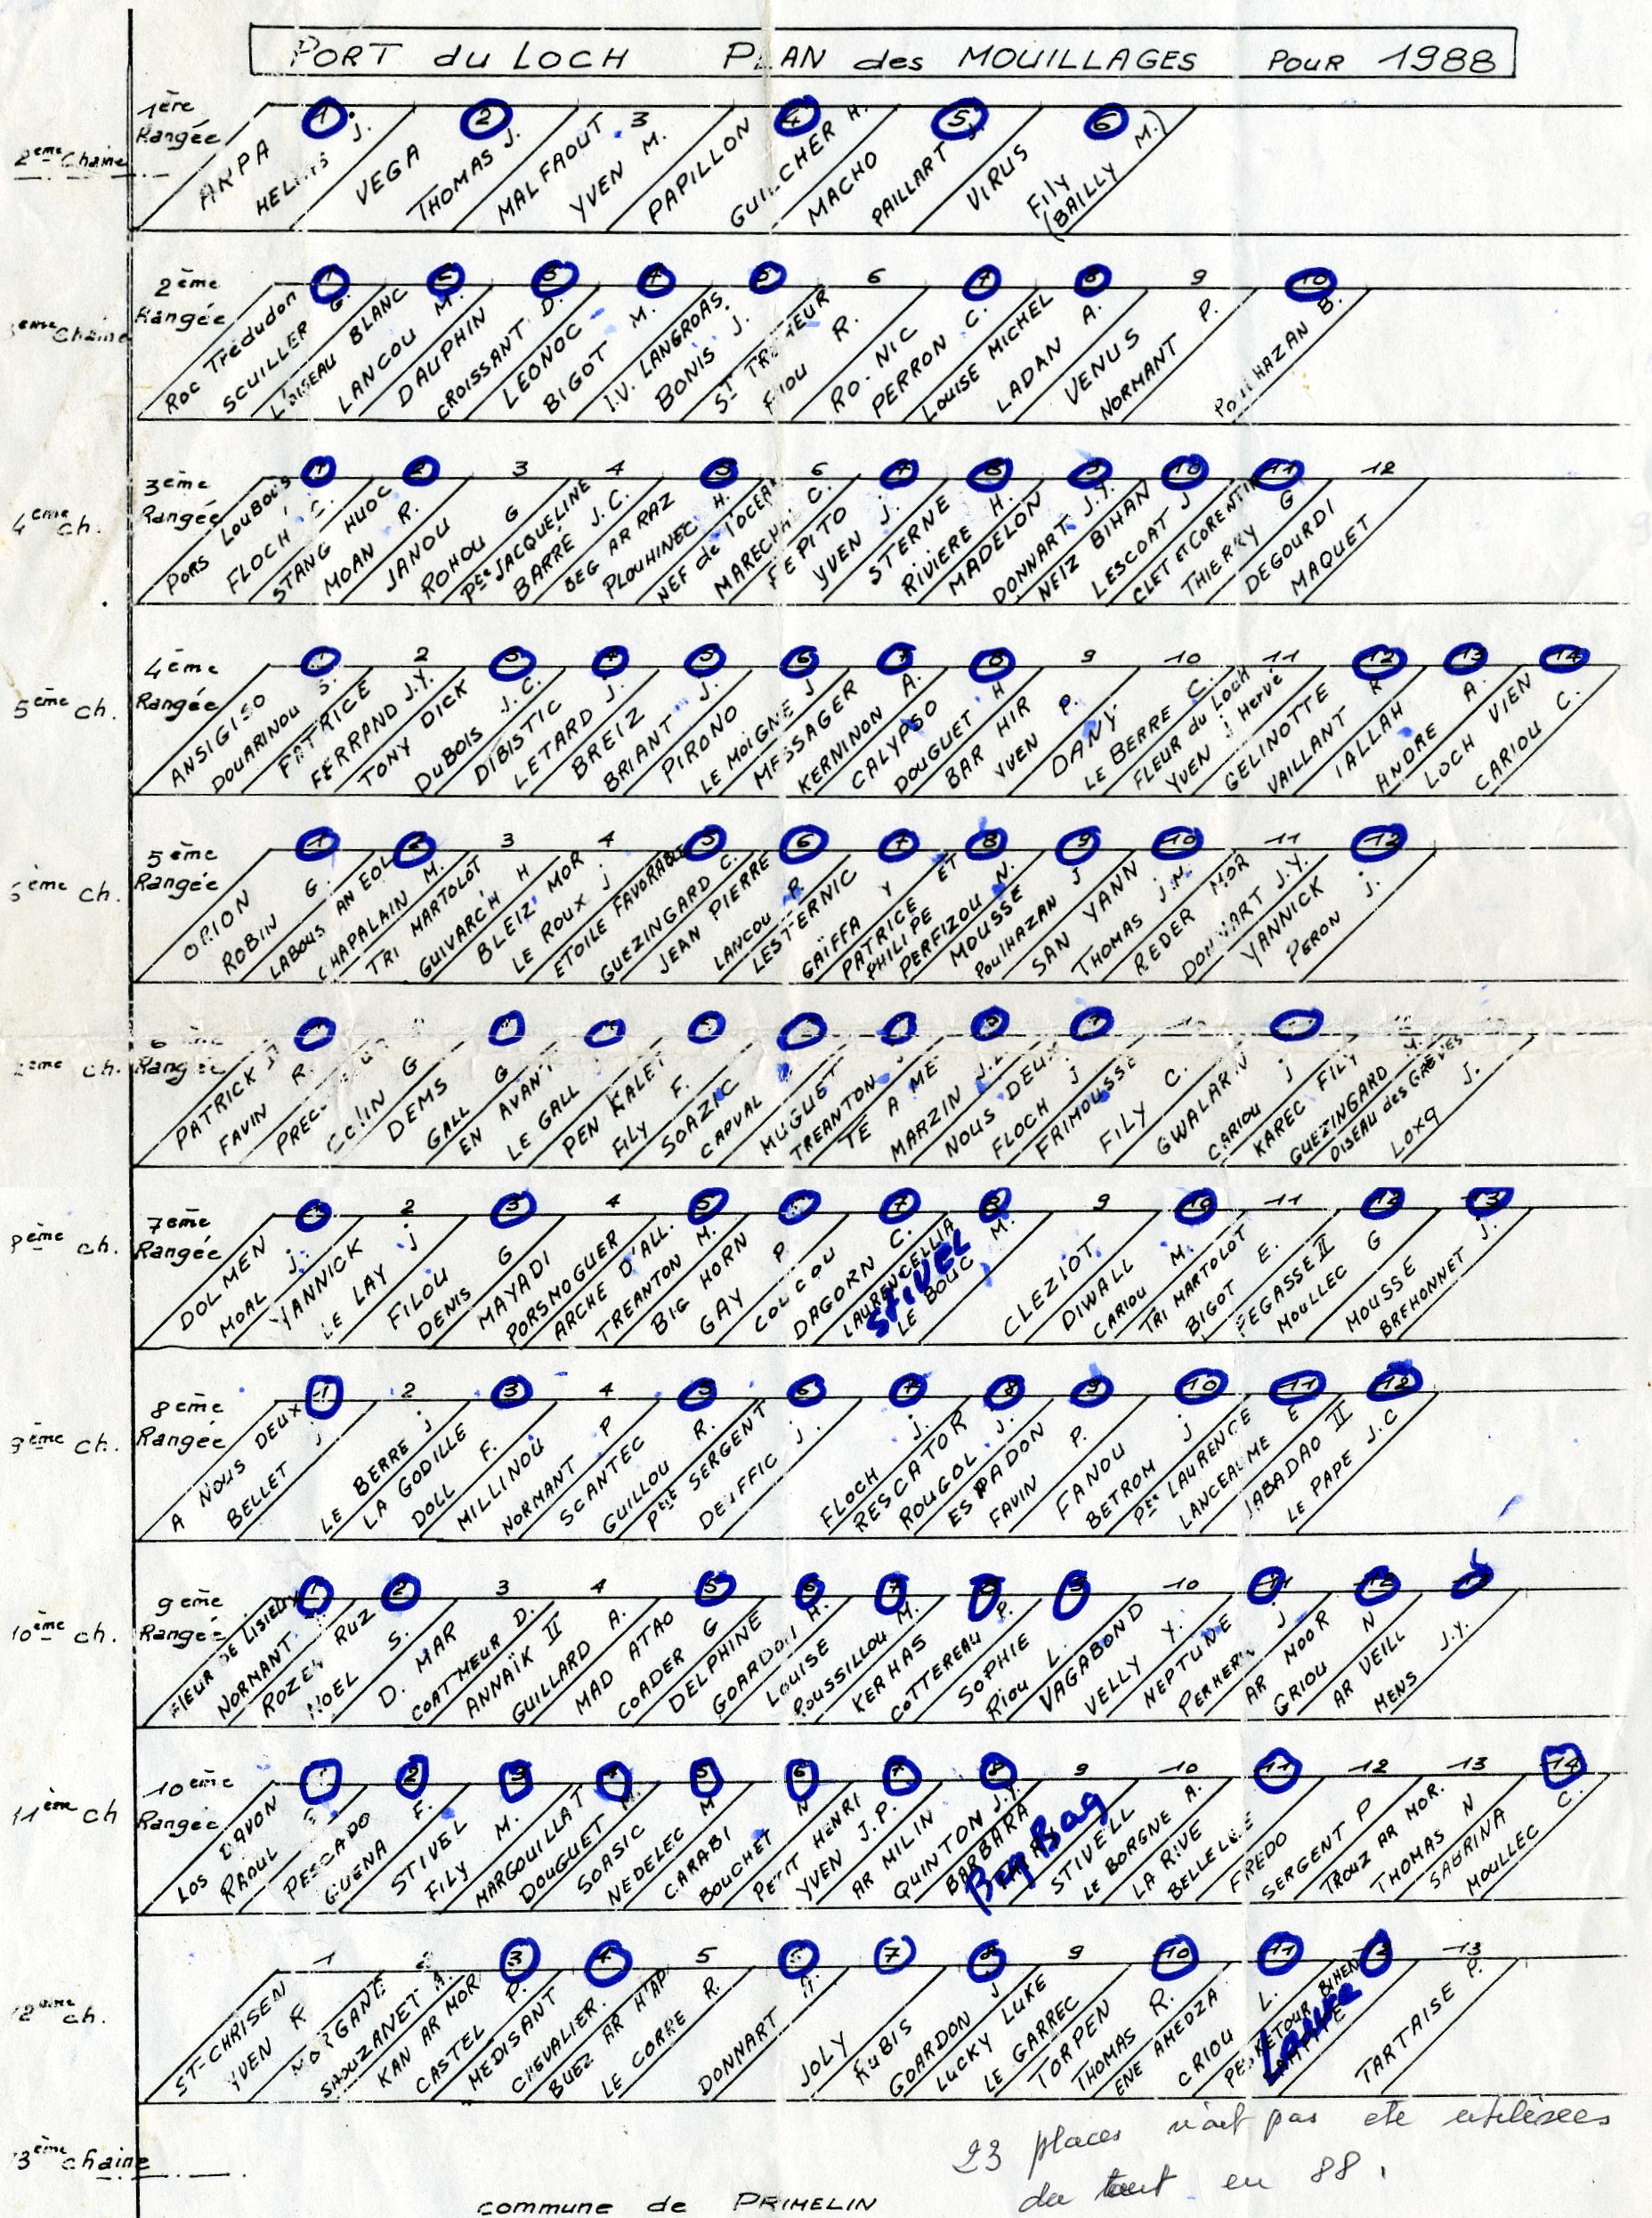 PORT du LOCH PLAN des MOUILLAGES POUR 1988
1ère Rangée
2ème Chaine
1 2 3 4 5 6
HELIAS J.
VEGA
THOMAS J.
MALFAOUT
YVEN M.
PAPILLON
GUILCHER H.
MACHO
PAILLART J.
VIRUS
FILY
(BAILLY M.)
2ème Rangée
Chaine
1 2 3 4 5 6 7 8 9 10
Roc Trédudon
SCUILLER G.
L'OISEAU BLANC
LANCOU M.
DAUPHIN
CROISSANT D.
LEONOC
BIGOT M.
I.V. LANGROAS
BONIS J.
ST TREMEUR
RIOU R.
RO-NIC
PERRON C.
LOUISE MICHEL
LADAN A.
VENUS
NORMANT P.
POULHAZAN B.
3ème Rangée
4ème ch.
1 2 3 4 5 6 7 8 9 10 11 12
PORS LOUBOUS
FLOCH C.
STANG HUOC
MOAN R.
JANOU
ROHOU G
Ptte JACQUELINE
BARRÉ J.C.
BEG AR RAZ
PLOUHINEC H.
NEF de l'OCEAN
MARECHAL C.
PEPITO
YVEN J.
STERNE
RIVIERE H.
MADELON
DONNART J.Y.
NEIZ BIHAN
LESCOAT J
CLET et CORENTIN
THIERRY G
DEGOURDI
MAQUET
4ème Rangée
5ème ch.
1 2 3 4 5 6 7 8 9 10 11 12 13 14
ANSIGISO
DOUARINOU S.
PATRICE
FERRAND J.Y.
TONY DICK
DUBOIS J.C.
DIBISTIC
LETARD J.
BREIZ
BRIANT J.
PIRONO
LE MOIGNE J
MESSAGER
KERNINON A.
CALYPSO
DOUGUET H
BAR HIR
YVEN P.
DANY
LE BERRE C.
FLEUR du LOCH
YVEN J Hervé
GELINOTTE
VAILLANT R
IALLAH
ANDRE A.
LOCH VIEN
CARIOU C.
5ème Rangée
ème ch.
1 2 3 4 5 6 7 8 9 10 11 12
ORION
ROBIN G.
LABOUS AN EOL
CHAPALAIN M.
TRI MARTOLOT
GUIVARC'H H
BLEIZ MOR
LE ROUX J
ETOILE FAVORABLE
GUEZINGARD C.
JEAN PIERRE
LANCOU P.
LESTERNIC
GAÏFFA Y
PATRICE ET PHILIPE
PERFIZOU N.
MOUSSE
POULHAZAN J
SAN YANN
THOMAS J.N.
REDER MOR
DONNART J.Y.
YANNICK
PERON J.
6 Rangée
ème ch.
PATRICK
FAVIN R.
COLIN G
DEMS
GALL G
EN AVANT
LE GALL
PEN KALET
FILY F.
SOAZIC
CAPVAL
MUGUET
TREANTON
TE A ME
MARZIN J.L
NOUS DEUX
FLOCH J
FRIMOUSSE
FILY C.
GWALARN
CARIOU J
KAREC FILY
GUEZINGARD
OISEAU des GREVES
J.
7ème Rangée
ème ch.
1 2 3 4 5 6 7 8 9 10 11 12 13
DOLMEN
MOAL J.
YANNICK
LE LAY J
FILOU
DENIS G
MAYADI
PORSMOGUER
ARCHE D'ALL.
TREANTON M.
BIG HORN
GAY P.
COUCOU
DAGORN C.
LAURENCELLIA
STIVEL
LE BOUC M.
CLEZIOT
DIWALL
CARIOU M.
TRI MARTOLOT
BIGOT E.
PEGASSE II
MOULLEC G
MOUSSE
BREHONNET J.
8ème Rangée
9ème ch.
1 2 3 4 5 6 7 8 9 10 11 12
A NOUS DEUX
BELLET J
LE BERRE J
LA GODILLE
DOLL F.
MILLINOU
NORMANT P
SCANTEC
GUILLOU R.
Ptite SERGENT
DEUFFIC J.
FLOCH J.
RESCATOR
ROUGOL J.
ESPADON
FAVIN P.
FANOU
BETROM J
Ptte LAURENCE
LANCEAUME E
JABADAO II
LE PAPE J.C
9ème Rangée
10ème ch.
1 2 3 4 5 6 7 8 9 10 11 12 13
FLEUR DE LISIEUX
NORMANT
ROZEN RUZ
NOEL S.
D. MAR
COATMEUR D.
ANNAÏK II
GUILLARD A.
MAD ATAO
COADER G
DELPHINE
GOARDON H.
LOUISE
POUSSILLOU M.
KERHAS
COTTEREAU P.
SOPHIE
RIOU L.
VAGABOND
VELLY Y.
NEPTUNE
PERHERIN J
AR MOOR
GRIOU N
AR VEILL
MENS J.Y.
10ème Rangée
11ème ch
1 2 3 4 5 6 7 8 9 10 11 12 13 14
LOS D'AVON
RAOUL G
PESCADO
GUENA F.
STIVEL
FILY M.
MARGOUILLAT
DOUGUET M.
SOASIC
NEDELEC M
CARABI
BOUCHET N
PETIT HENRI
YVEN J.P.
AR MILIN
QUINTON J.Y.
BARBARA
Beg Bag
STIVELL
LE BORGNE A.
LA RIVE
FREDO
SERGENT P
TROUZ AR MOR.
THOMAS N
SABRINA
MOULLEC C.
ème ch.
1 2 3 4 5 6 7 8 9 10 11 12 13
ST-CHRISEN
YVEN R
MORGANE
SAOUZANET A.
KAN AR MOR
CASTEL P.
MEDISANT
CHEVALIER.
BUEZ AR H'AP
LE CORRE R.
DONNART A.
JOLY
RUBIS
GOARDON J
LUCKY LUKE
LE GARREC
TORPEN
THOMAS R.
ENE AMEDZA
CRIOU L.
PESKETOUR BIHEN
Laure
TARTAISE P.
ème chaine
23 places n'ont pas été utilisées
du tout en 88.
commune de PRIMELIN